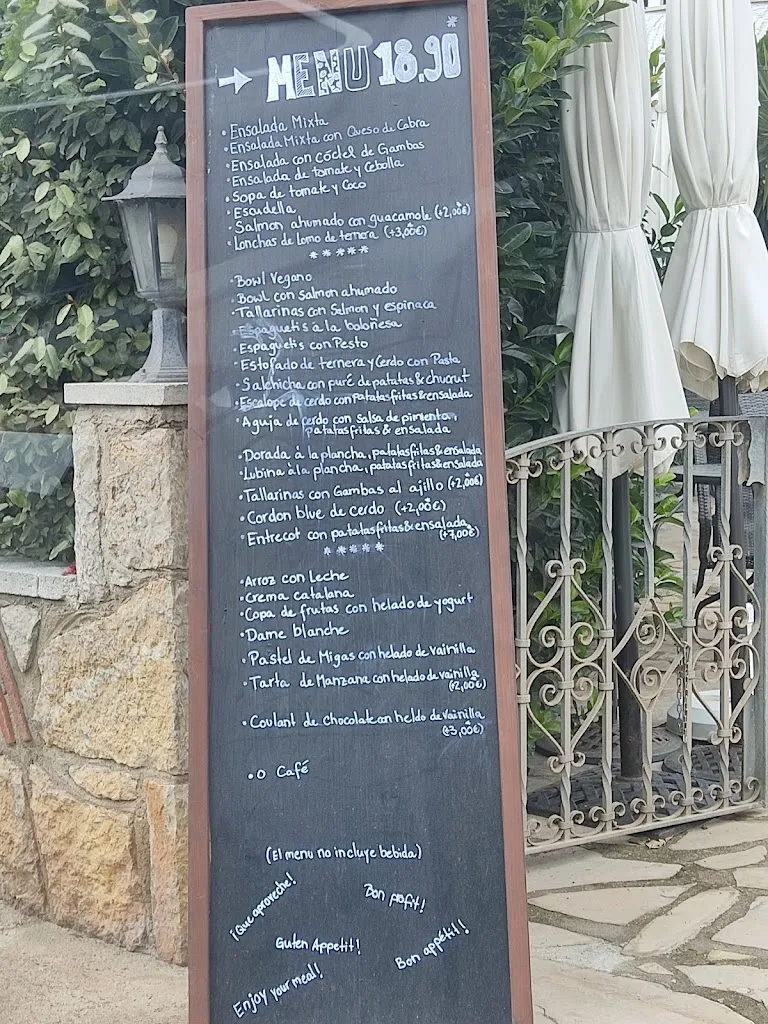 *
→ MENU 18.90
• Ensalada Mixta
• Ensalada Mixta con Queso de Cabra
• Ensalada con cóctel de Gambas
• Ensalada de tomate y Cebolla
• Sopa de tomate y Coco
• Escudella
• Salmon ahumado con guacamole (+2,00€)
• Lonchas de lomo de ternera (+3,00€)
* * * * *
• Bowl Vegano
• Bowl con salmon ahumado
• Tallarinas con Salmon y espinaca
• Espaguetis à la boloñesa
• Espaguetis con Pesto
• Estofado de ternera y Cerdo con Pasta
• Salchicha con puré de patatas & chucrut
• Escalope de cerdo con patatas fritas & ensalada
• Aguja de cerdo con salsa de pimienta,
patatas fritas & ensalada
• Dorada à la plancha, patatas fritas & ensalada
• Lubina à la plancha, patatas fritas & ensalada
• Tallarinas con Gambas al ajillo (+2,00€)
• Cordon blue de cerdo (+2,00€)
• Entrecot con patatas fritas & ensalada
(+7,00€)
* * * * *
• Arroz con Leche
• Crema catalana
• Copa de frutas con helado de yogurt
• Dame blanche
• Pastel de Migas con helado de vainilla
• Tarta de Manzana con helado de vainilla
(+2,00€)
• Coulant de chocolate con heldo de vainilla
(+3,00€)
• o Café
(El menu no incluye bebida)
¡Que aproveche!
Bon profit!
Guten Appetit!
Bon appétit!
Enjoy your meal!